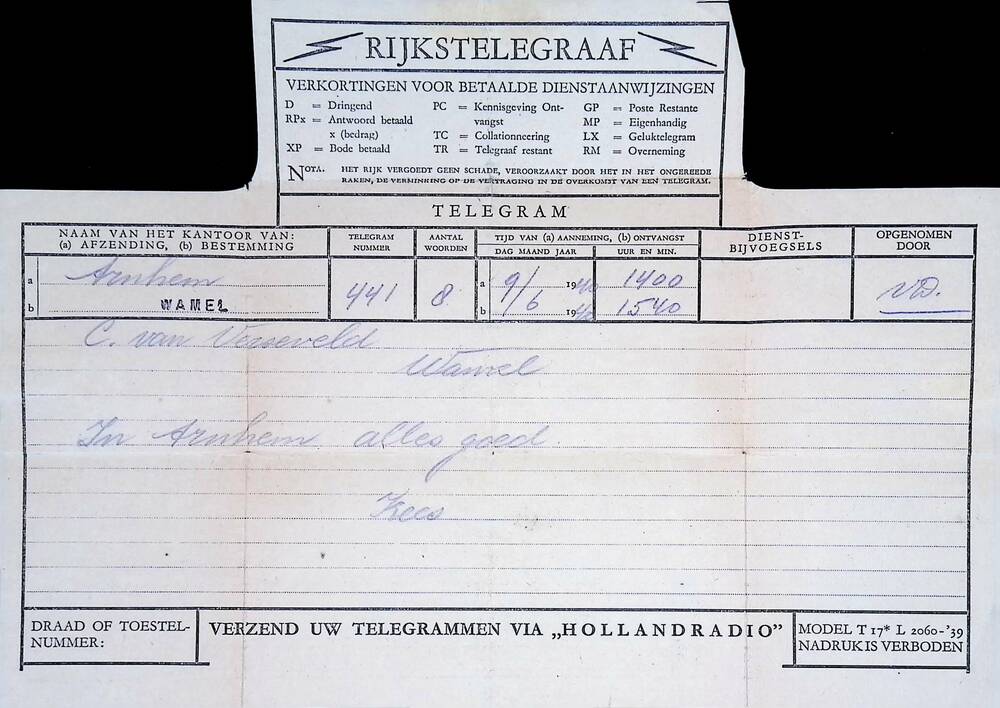 RIJKSTELEGRAAF
VERKORTINGEN VOOR BETAALDE DIENSTAANWIJZINGEN
D = Dringend
RPx = Antwoord betaald
x (bedrag)
XP = Bode betaald
PC = Kennisgeving Ont-
vangst
TC = Collationneering
TR = Telegraaf restant
GP = Poste Restante
MP = Eigenhandig
LX = Geluktelegram
RM = Overneming
NOTA. HET RIJK VERGOEDT GEEN SCHADE, VEROORZAAKT DOOR HET IN HET ONGEREEDE
RAKEN, DE VERMINKING OP DE VERTRAGING IN DE OVERKOMST VAN EEN TELEGRAM.
TELEGRAM
NAAM VAN HET KANTOOR VAN:
(a) AFZENDING, (b) BESTEMMING
TELEGRAM
NUMMER
AANTAL
WOORDEN
TIJD VAN (a) AANNEMING, (b) ONTVANGST
DAG MAAND JAAR
UUR EN MIN.
DIENST-
BIJVOEGSELS
OPGENOMEN
DOOR
a Arnhem
b WAMEL
441
8
9/6
a 1940 1400
b 1940 1540
VD.
C. van
Wamel
In Arnhem alles goed
Kees
DRAAD OF TOESTEL-
NUMMER:
VERZEND UW TELEGRAMMEN VIA „HOLLANDRADIO”
MODEL T 17* L 2060-'39
NADRUK IS VERBODEN